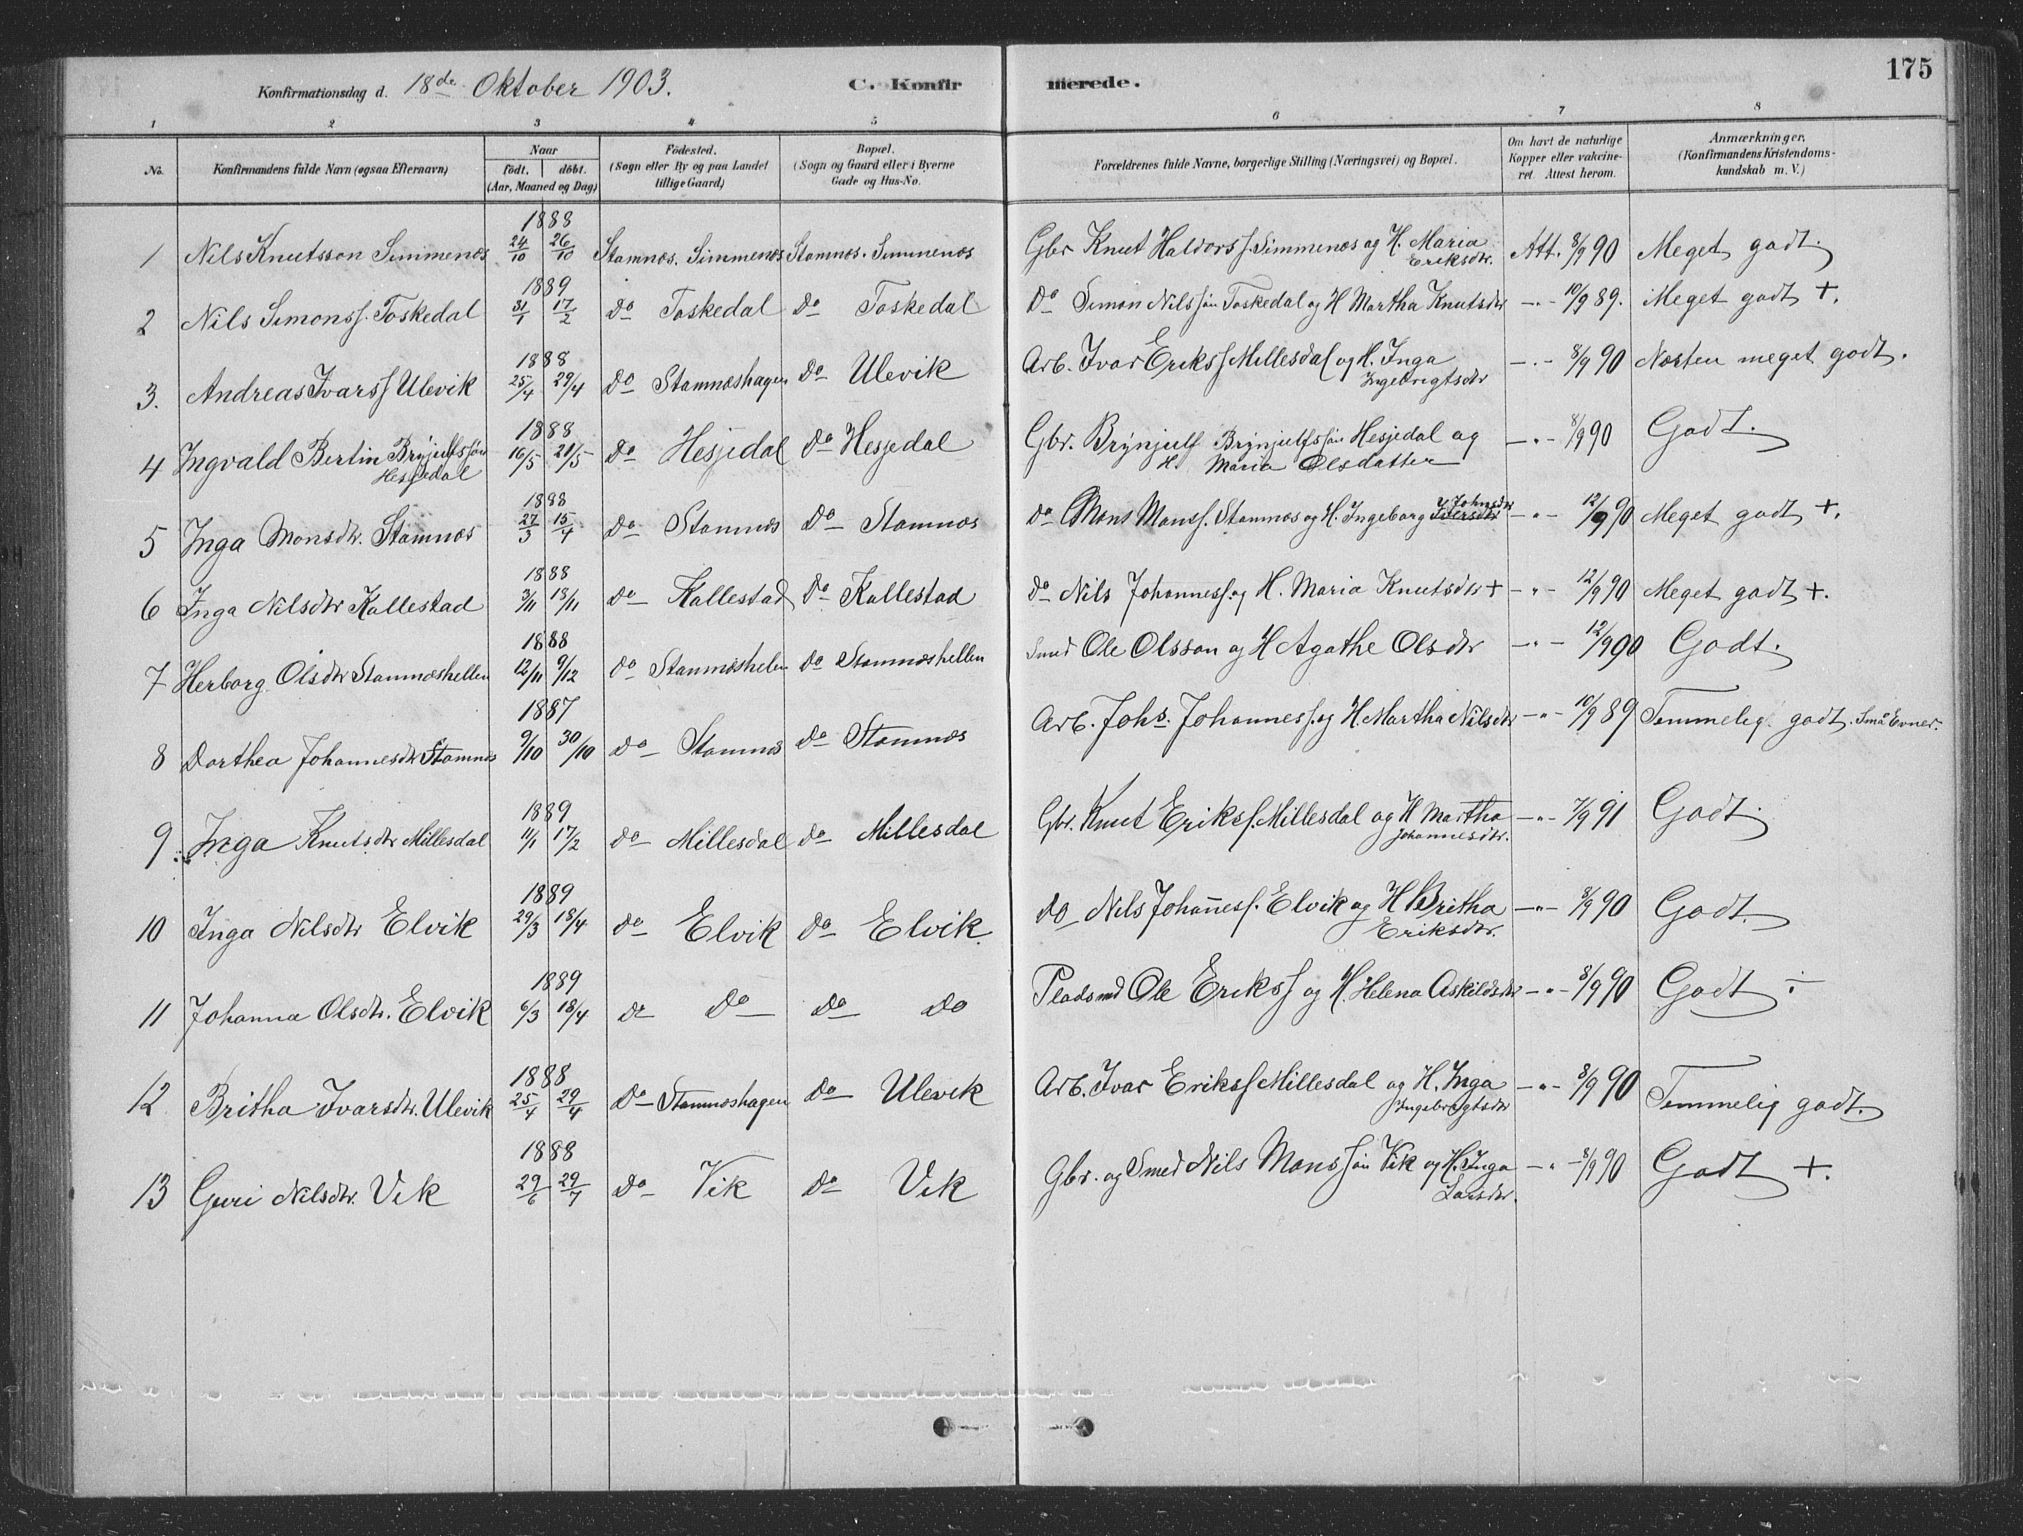 175
Konfirmationsdag d. 18de Oktober 1903. C. Konfir merede.
1 2 3 4 5 6 7 8
No. Konfirmandens fulde Navn (ogsaa Efternavn) Naar født, døbt. (Aar, Maaned og Dag) Fødested. (Sogn eller By og paa Landet tillige Gaard) Bopæl. (Sogn og Gaard eller i Byerne Gade og Hus-No. Forældrenes fulde Navne, borgerlige Stilling (Næringsvei) og Bopæl. Om havt de naturlige Kopper eller vakcineret. Attest herom. Anmærkninger. (Konfirmandens Kristendomskundskab m. V.)
1888
1 Nils Knutsson Simmenæs 24/10 26/10 Stamnæs. Simmenæs Stamnæs. Simmenæs Gbr Knut Haldorss. Simmenæs og H. Maria Eriksdtr. Att. 8/9 90 Meget godt.
1889
2 Nils Simonss. Toskedal 31/1 17/2 Do Toskedal Do Toskedal Do Simon Nilssøn Toskedal og H Martha Knutsdtr -"- 10/9 89. Meget godt +.
1888
3. Andreas Ivarss Ulevik 25/4 29/4 Do Stamnæshagen Do Ulevik Arb. Ivar Erikss Millesdal og H. Inga Ingebrigtsdtr -"- 8/9 90 Næsten meget godt.
1888
4 Ingvald Bertin Brynjulfssøn Hesjedal 16/5 21/5 Do Hesjedal Do Hesjedal Gbr. Brynjulf Brynjulfssøn Hesjedal og H. Maria Olsdatter -"- 8/9 90 Godt.
1888
5 Inga Monsdtr. Stamnæs 27/3 15/4 Do Stamnæs Do Stamnæs Do Mons Monss. Stamnæs og H. Ingeborg Johnsdtr -"- 12/9 90 Meget godt +.
1888
6 Inga Nilsdtr Kallestad 3/11 18/11 Do Kallestad Do Kallestad Do Nils Johanness. og H. Maria Knutsdtr + -"- 12/9 90 Meget godt +.
1888
7 Herborg Olsdtr Stamnæshellen 12/11 9/12 Do Stamnæshelen Do Stamnæshellen Smed Ole Olsson og H Agathe Olsdtr -"- 12/9 90 Godt.
1887
8 Dorthea Johannesdtr Stamnæs 9/10 30/10 Do Stamnæs Do Stamnæs Arb. Johs. Johanness. og H. Martha Nilsdtr -"- 10/9 89 Temmelig godt. Små Evner.
1889
9. Inga Knutsdtr Millesdal 11/1 17/2 Do Millesdal Do Millesdal Gbr. Knut Erikss. Millesdal og H Martha Johannesdtr. -"- 7/9 91 Godt.
1889
10 Inga Nilsdtr Elvik 29/3 18/4 Do Elvik Do Elvik. Do Nils Johañess. Elvik og H Britha Eriksdtr. -"- 8/9 90 Godt.
1889
11 Johanna Olsdtr. Elvik 6/3 18/4 Do Do Do Do Pladsmd Ole Erikss og H. Helena Askildsdtr -"- 8/9 90 Godt ÷
1888
12 Britha Ivarsdtr. Ulevik 25/4 29/4 Do Stamnæshagen Do Ulevik Arb. Ivar Erikss Millesdal og H. Inga Ingebrigtsdtr -"- 8/9 90 Temmelig godt.
1888
13 Guri Nilsdtr. Vik 29/6 29/7 Do Vik Do Vik Gbr. og Smed Nils Monssøn Vik og H. Inga Larsdtr. -"- 8/9 90 Godt +.